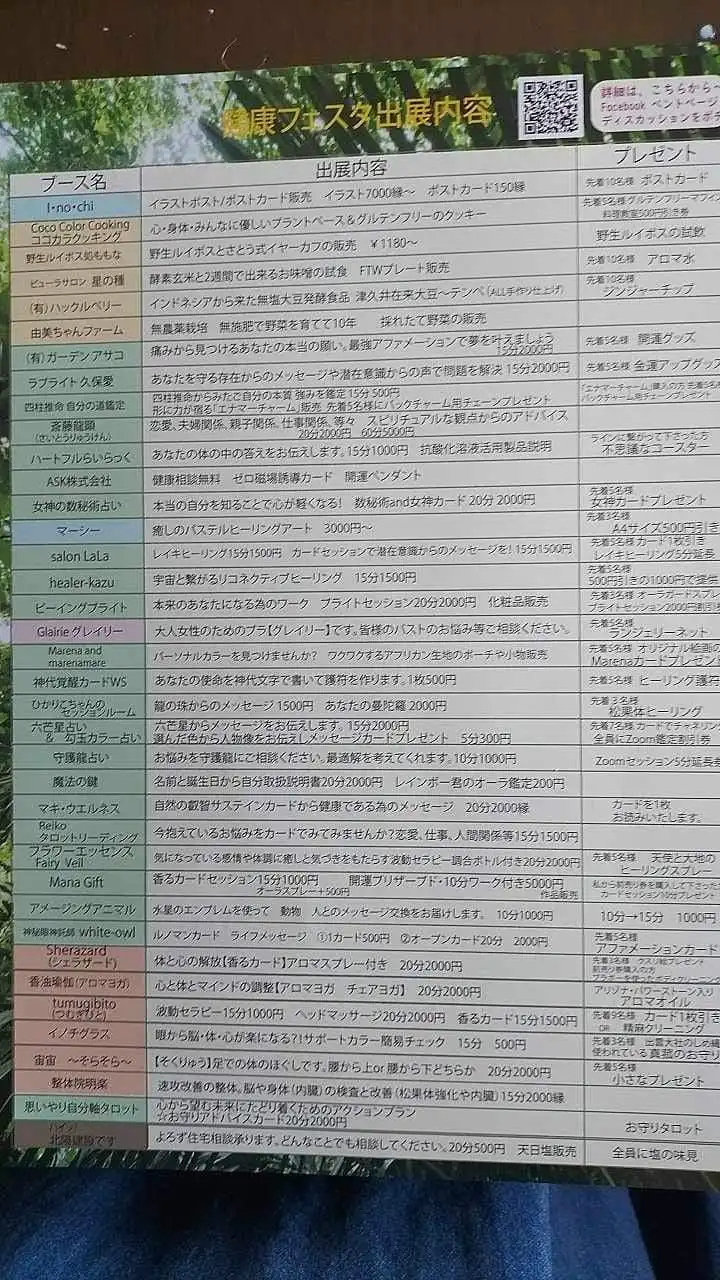 健康フェスタ出展内容
詳細は、こちらから
Facebook ベントページ
ディスカッションをポチ
ブース名 出展内容 プレゼント
I・no・chi イラストポスト/ポストカード販売 イラスト7000縁~ ポストカード150縁 先着10名様 ポストカード
Coco Color Cooking ココカラクッキング 心・身体・みんなに優しいプラントベース&グルテンフリーのクッキー 先着5名様グルテンフリーマフィン 料理教室500円引き券
野生ルイボス処ももな 野生ルイボスとさとう式イヤーカフの販売 ¥1180~ 野生ルイボスの試飲
ピューラサロン 星の種 酵素玄米と2週間で出来るお味噌の試食 FTWプレート販売 先着10名様 アロマ水
(有)ハックルベリー インドネシアから来た無塩大豆発酵食品 津久井在来大豆~テンペ(ALL手作り仕上げ) 先着10名様 ジンジャーチップ
由美ちゃんファーム 無農薬栽培 無施肥で野菜を育てて10年 採れたて野菜の販売
(有)ガーデンアサコ 痛みから見つけるあなたの本当の願い。最強アファメーションで夢を叶えましょう 15分2000円 先着5名様 開運グッズ
ラブライト久保愛 あなたを守る存在からのメッセージや潜在意識からの声で問題を解決 15分2000円 先着5名様 金運アップグッズ
四柱推命 自分の道鑑定 四柱推命からみたで自分の本質 強みを鑑定 15分 500円 形に力が宿る「エナマーチャーム」販売 先着5名様にバックチャーム用チェーンプレゼント 「エナマーチャーム」購入の方 先着5名 バックチャーム用チェーンプレゼント
斎藤龍顕(さいとうりゅうけん) 恋愛、夫婦関係、親子関係。仕事関係、等々 スピリチュアルな観点からのアドバイス 20分2000円 60分5000円
ハートフルらいらっく あなたの体の中の答えをお伝えします。15分1000円 抗酸化溶液活用製品説明 ラインに繋がって下さった方 不思議なコースター
ASK株式会社 健康相談無料 ゼロ磁場誘導カード 開運ペンダント
女神の数秘術占い 本当の自分を知ることで心が軽くなる! 数秘術and女神カード 20分 2000円 先着5名様 女神カードプレゼント
マーシー 癒しのパステルヒーリングアート 3000円~ 先着3名様 A4サイズ500円引き
salon LaLa レイキヒーリング15分1500円 カードセッションで潜在意識からのメッセージを! 15分1500円 先着5名様 カード1枚引き レイキヒーリング5分延長
healer-kazu 宇宙と繋がるリコネクティブヒーリング 15分1500円 先着5名様 500円引きの1000円で提供
ビーイングブライト 本来のあなたになる為のワーク ブライトセッション20分2000円 化粧品販売 先着5名様 オーラガードスプレ ブライトセッション2000円割引
Glairie グレイリー 大人女性のためのブラ【グレイリー】です。皆様のバストのお悩み等ご相談ください。 先着5名様 ランジェリーネット
Marena and marenamare パーソナルカラーを見つけませんか? ワクワクするアフリカン生地のポーチや小物販売 先着5名様 オリジナル絵画の Marenaカードプレゼント
神代覚醒カードWS あなたの使命を神代文字で書いて護符を作ります。1枚500円 先着5名様 ヒーリング護符
ひかりこちゃんのセッションルーム 龍の珠からのメッセージ 1500円 あなたの曼陀羅 2000円 先着3名様 松果体ヒーリング
六芒星占い & 勾玉カラー占い 六芒星からメッセージをお伝えします。15分2000円 選んだ色から人物像をお伝えしメッセージカードプレゼント 5分300円 先着7名様 カードでチャネリン 全員にZoom鑑定割引券
守護龍占い お悩みを守護龍にご相談ください。最適解を考えてくれます。10分1000円 Zoomセッション5分延長券
魔法の鍵 名前と誕生日から自分取扱説明書20分2000円 レインボー君のオーラ鑑定200円
マキ・ウエルネス 自然の叡智サステインカードから健康である為のメッセージ 20分2000縁 カードを1枚 お読みいたします。
Reiko タロットリーディング 今抱えているお悩みをカードでみてみませんか?恋愛、仕事、人間関係等15分1500円
フラワーエッセンス Fairy Veil 気になっている感情や体調に癒しと気づきをもたらす波動セラピー調合ボトル付き20分2000円 先着5名様 天使と大地の ヒーリングスプレー
Mana Gift 香るカードセッション15分1000円 開運プリザーブド・10分ワーク付き5000円 オーラスプレー+500円 作品販売 私から前売り券を購入して下さった カードセッション10分プレゼント
アメージングアニマル 水星のエンブレムを使って 動物 人とのメッセージ交換をお届けします。 10分1000円 10分→15分 1000円
神秘眼神託師 white-owl ルノマンカード ライフメッセージ ①1カード500円 ②オープンカード20分 2000円 先着5名様 アファメーションカード
Sherazard(シェラザード) 体と心の解放【香るカード】アロマスプレー付き 20分2000円 先着3名様 クスリ絵プレゼント 前売り券購入の方
香油瑜伽(アロマヨガ) 心と体とマインドの調整【アロマヨガ チェアヨガ】 20分2000円 アリゾナ・パワーストーン入り アロマオイル
tumugibito(つむぎびと) 波動セラピー15分1000円 ヘッドマッサージ20分2000円 香るカード15分1500円 先着9名様 カード1枚引き OR 精麻クリーニング
イノチグラス 眼から脳・体・心が楽になる?!サポートカラー簡易チェック 15分 500円 先着3名様 出雲大社のしめ縄 使われている真菰のお守り
宙宙 ~そらそら~ 【そくりゅう】足での体のほぐしです。腰から上or 腰から下どちらか 20分2000円 先着5名様 小さなプレゼント
整体院明楽 速攻改善の整体。脳や身体(内臓)の検査と改善(松果体強化や内臓)15分2000縁
思いやり自分軸タロット 心から望む未来にたどり着くためのアクションプラン ☆お守りアドバイスカード20分2000円 お守りタロット
ハイシ! 北陸建設です よろず住宅相談承ります。どんなことでも相談してください。20分500円 天日塩販売 全員に塩の味見